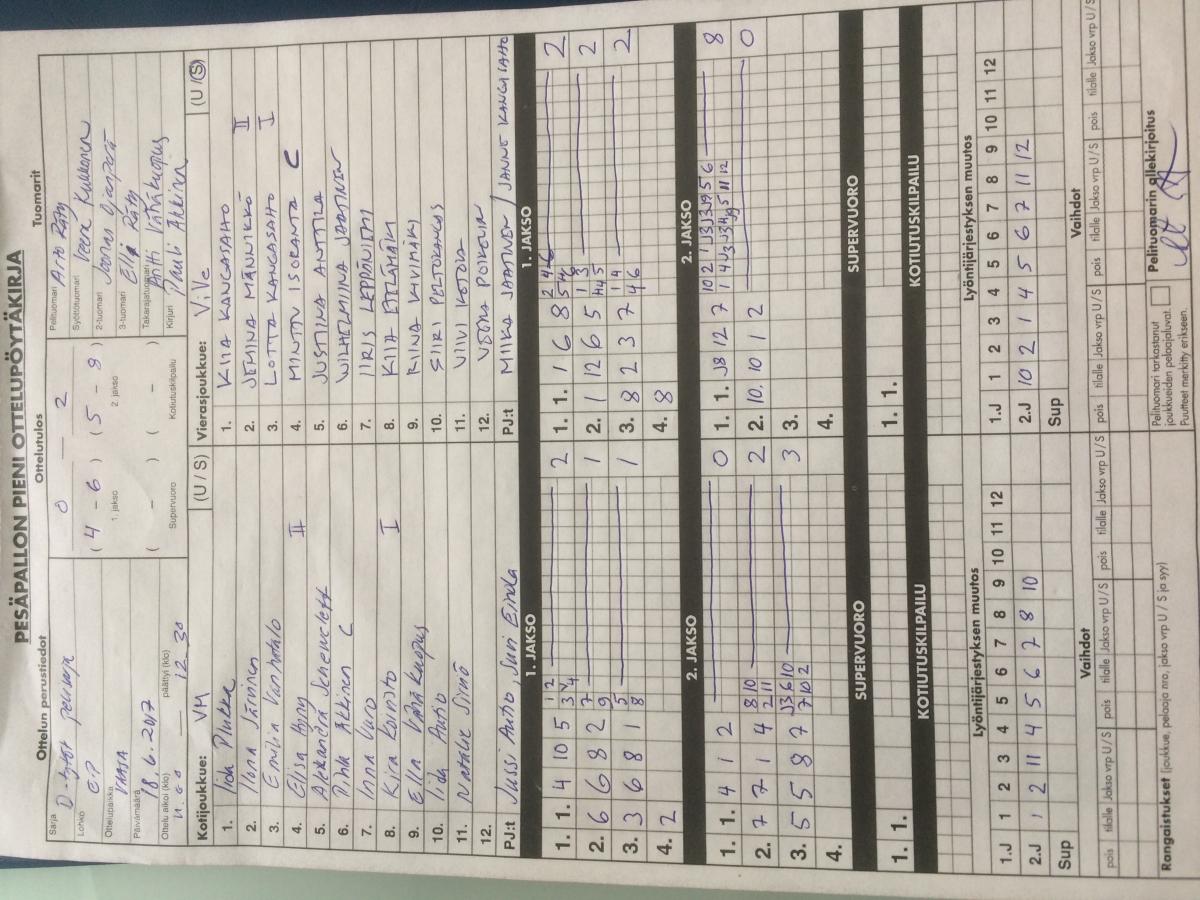 PESÄPALLON PIENI OTTELUPÖYTÄKIRJA
Ottelun perustiedot
Ottelutulos
Tuomarit
Sarja D-tytöt
Lohko EP
Ottelupaikka VAASA
Päivämäärä 18.6.2017
Ottelu alkoi (klo) päättyi (klo) 12.30
0 — 2
(4 - 6) (5 - 8)
1. jakso 2. jakso
( - ) ( - )
Supervuoro Kotiutuskilpailu
Pelituomari Arto Räty
Syöttötuomari Veera Kukkonen
2-tuomari Joonas
3-tuomari Elli Räty
Takarajatuomari Antti Vätäkuopus
Kirjuri Pauli Äkkinen
Kotijoukkue: VM (U / S)
1. Iida
2. Ilona Järvinen
3. Emilia Vanhatalo
4. Elisa II
5. Aleksandra
6. Pihla Äkkinen C
7. Inna Vuro
8. Kira Koristo I
9. Ella
10. Iida Autio
11. Natalie Simó
12.
PJ:t Jussi Autio, Suvi Einola
Vierasjoukkue: ViVe (U / S)
1. KIIA KANGASAHO
2. JEMINA MÄNNIKKÖ II
3. LOTTA KANGASAHO I
4. MINTTU ISORANTA C
5. JUSTIINA ANTTILA
6. WILHELMIINA JAATINEN
7. IIRIS LEPPÄNIEMI
8. KIIA ETELÄMÄKI
9. RIINA KIVIMÄKI
10. SIIRI PELTOKANGAS
11. VIIVI KOTOLA
12. VEERA POIKOLA
PJ:t MIIKA JAATINEN / JANNE KANGASAHO
1. JAKSO
1. 1. 4 10 5 1 2 3 4 2
2. 6 6 8 2 7 9 1
3. 3 6 8 1 5 8 1
4. 2
1. JAKSO
1. 1. 1 6 8 2
2. 1 12 6 5 2
3. 8 2 3 7 1 4 4 6 2
4. 8
2. JAKSO
1. 1. 4 1 2 0
2. 7 7 1 4 8 10 2 11 2
3. 5 5 8 7 J3 6 10 7 10 2 3
4.
2. JAKSO
1. 1. J8 12 7 8
2. 10. 10 1 2 0
3.
4.
SUPERVUORO
1. 1.
SUPERVUORO
1. 1.
KOTIUTUSKILPAILU
KOTIUTUSKILPAILU
Lyöntijärjestyksen muutos
1.J 1 2 3 4 5 6 7 8 9 10 11 12
2.J 1 2 11 4 5 6 7 8 10
Sup
Lyöntijärjestyksen muutos
1.J 1 2 3 4 5 6 7 8 9 10 11 12
2.J 10 2 1 4 5 6 7 11 12
Sup
Vaihdot
pois tilalle Jakso vrp U / S pois tilalle Jakso vrp U / S pois tilalle Jakso vrp U / S
Vaihdot
pois tilalle Jakso vrp U / S pois tilalle Jakso vrp U / S pois tilalle Jakso vrp U / S
Rangaistukset (joukkue, pelaaja nro, jakso vrp U / S ja syy)
Pelituomari tarkastanut
joukkueiden peloajaluvat.
Puutteet merkitty erikseen.
Pelituomarin allekirjoitus